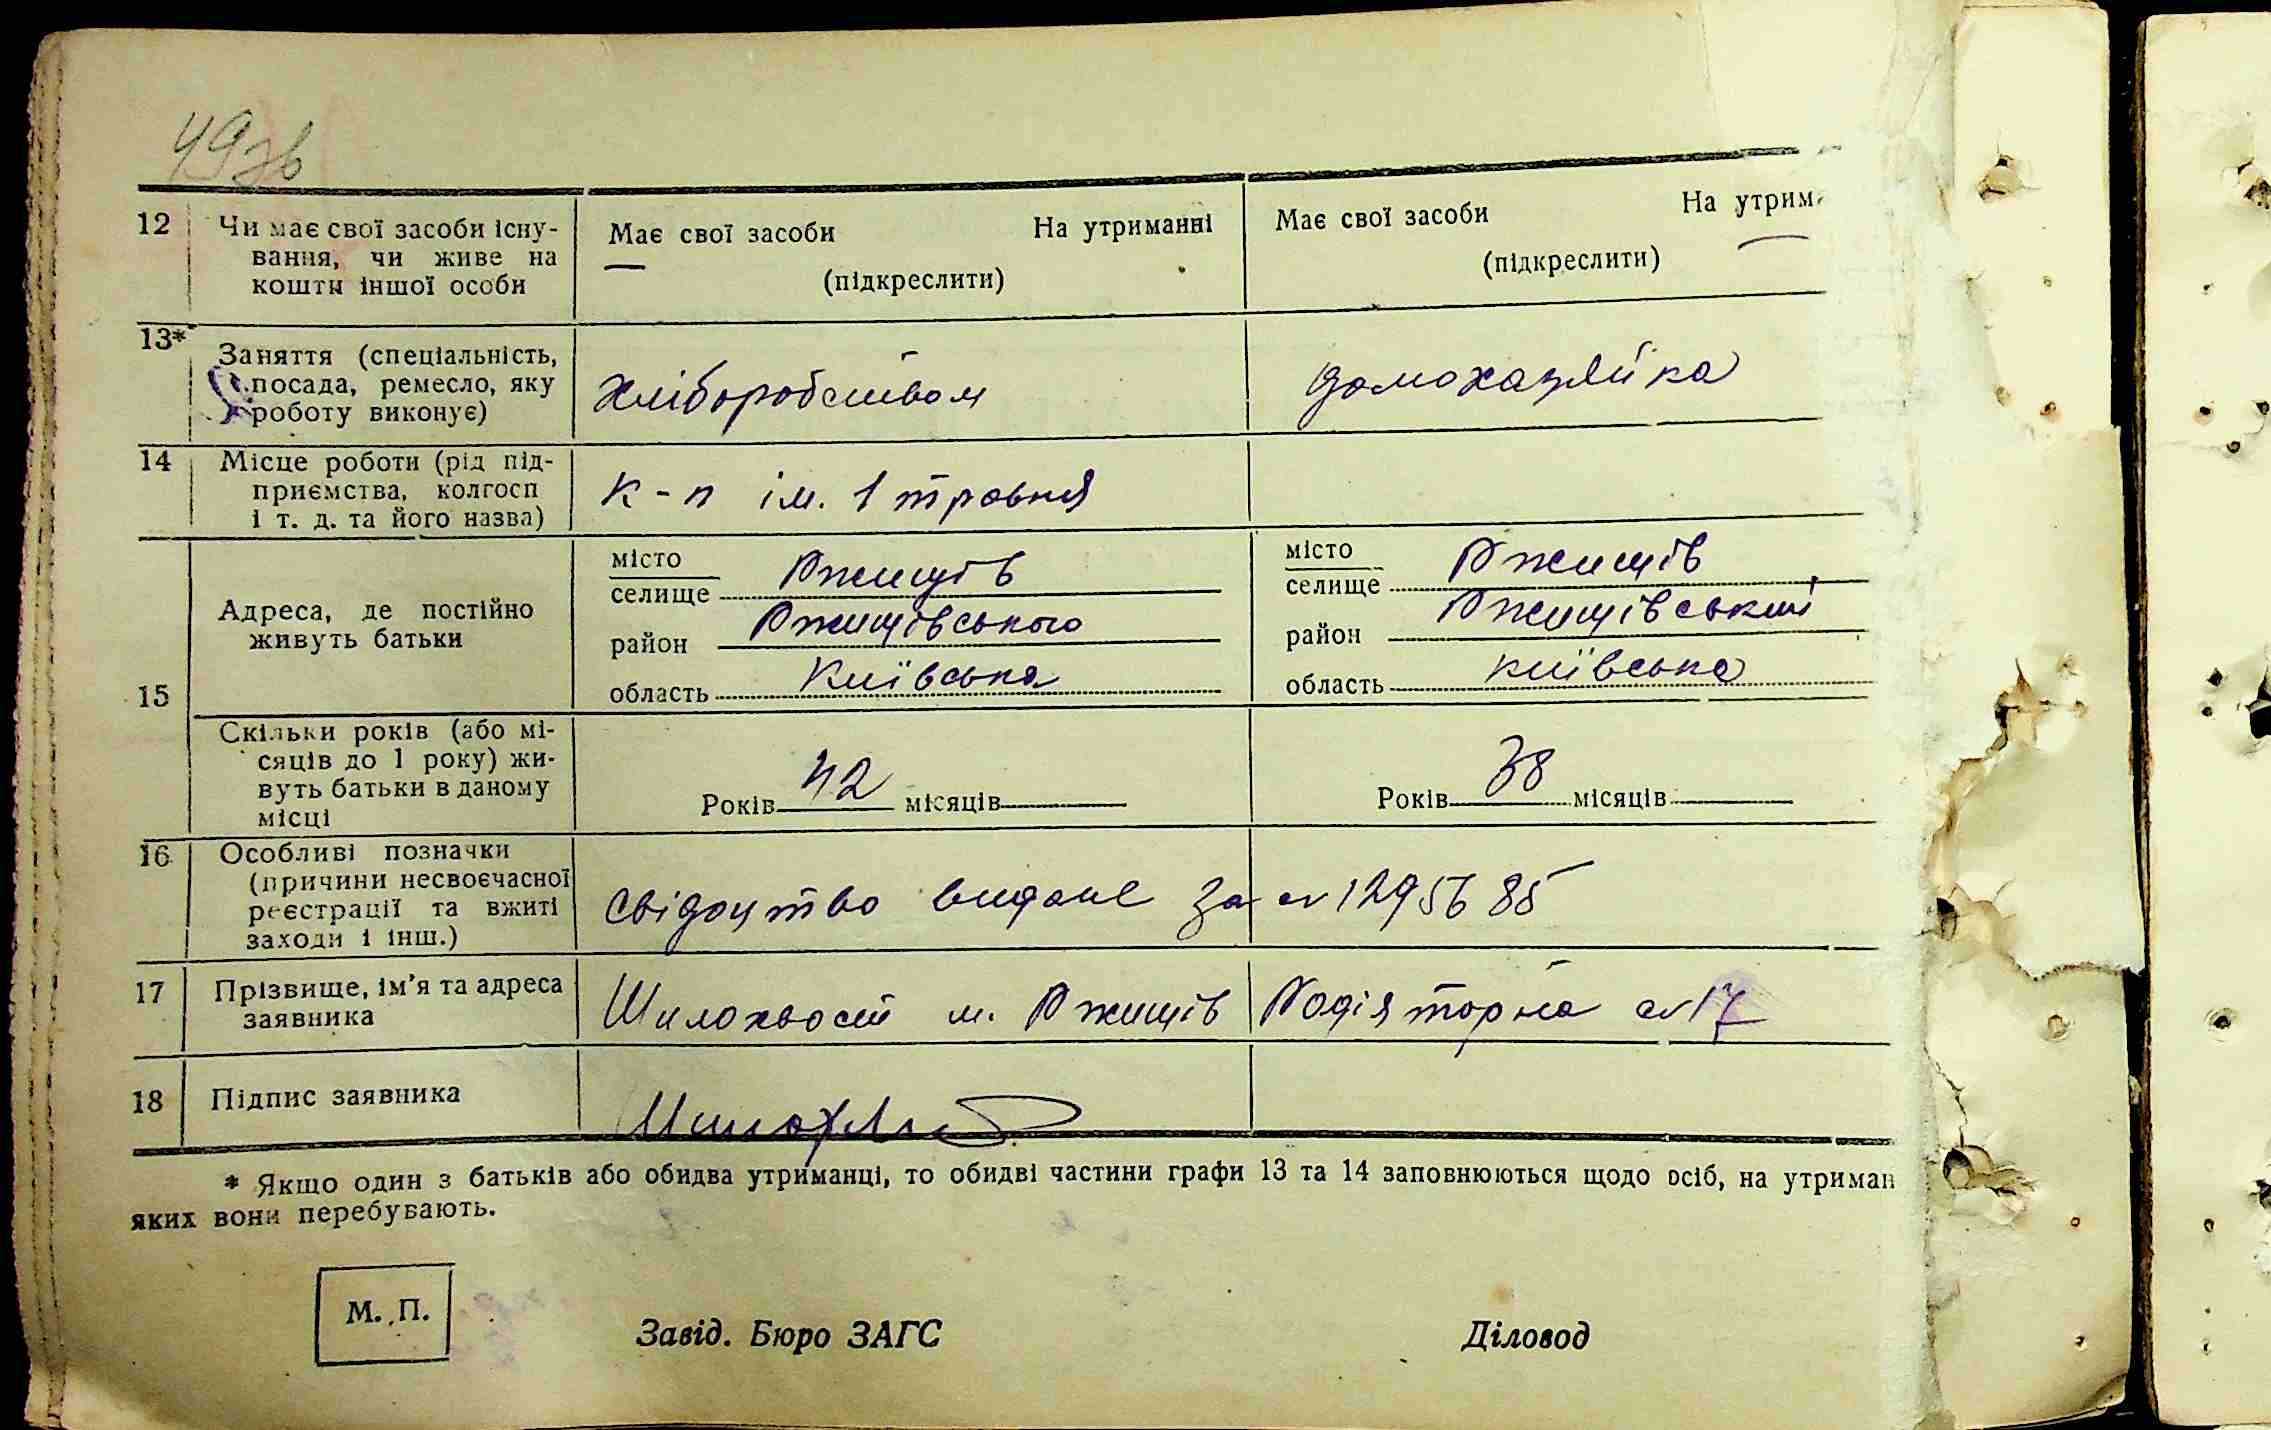 49зв
12 Чи має свої засоби існу- Має свої засоби На утриманні Має свої засоби На утрим
вання, чи живе на (підкреслити) (підкреслити)
кошти іншої особи
13* Заняття (спеціальність, хліборобством домохазяйка
посада, ремесло, яку
роботу виконує)
14 Місце роботи (рід під- к-п ім. 1 травня
приємства, колгосп
і т. д. та його назва)
15 Адреса, де постійно живуть батьки
місто Ржищів місто Ржищів
селище селище
район Ржищівського район Ржищівський
область Київська область Київська
Скільки років (або мі-
сяців до 1 року) жи-
вуть батьки в даному
місці
Років 42 місяців Років 38 місяців
16 Особливі позначки
(причини несвоєчасної
реєстрації та вжиті
заходи і інш.)
свідоцтво видане за № 1295685
17 Прізвище, ім'я та адреса Шилохвост м. Ржищів №17
заявника
18 Підпис заявника
* Якщо один з батьків або обидва утриманці, то обидві частини графи 13 та 14 заповнюються щодо осіб, на утриман
яких вони перебувають.
М. П. Завід. Бюро ЗАГС Діловод